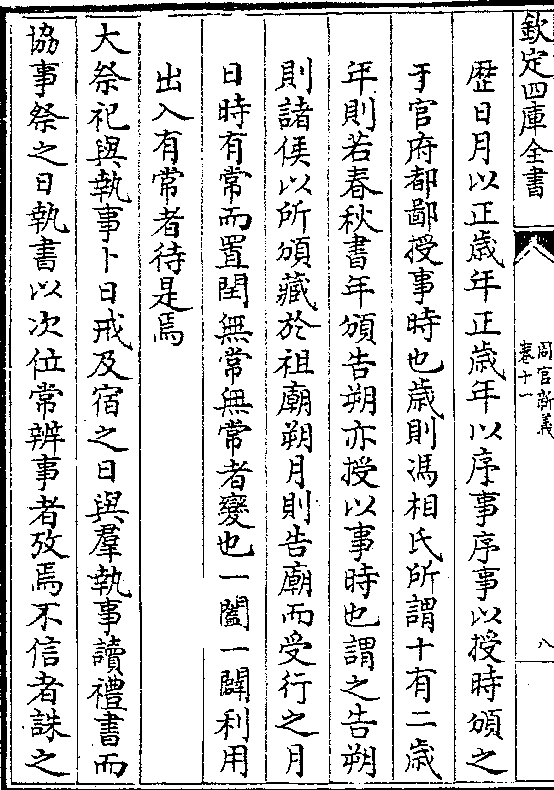 欽定四庫全書
周官新義
卷十一
八
歴日月以正歳年正歳年以序事序事以授時頒之
于官府都鄙授事時也歳則馮相氏所謂十有二歳
年則若春秋書年頒告朔亦授以事時也謂之告朔
則諸侯以所頒藏於祖廟朔月則告廟而受行之月
日時有常而置閏無常無常者變也一闔一闢利用
出入有常者待是焉
大祭祀與執事卜日戒及宿之日與羣執事讀禮書而
協事祭之日執書以次位常辨事者攷焉不信者誅之